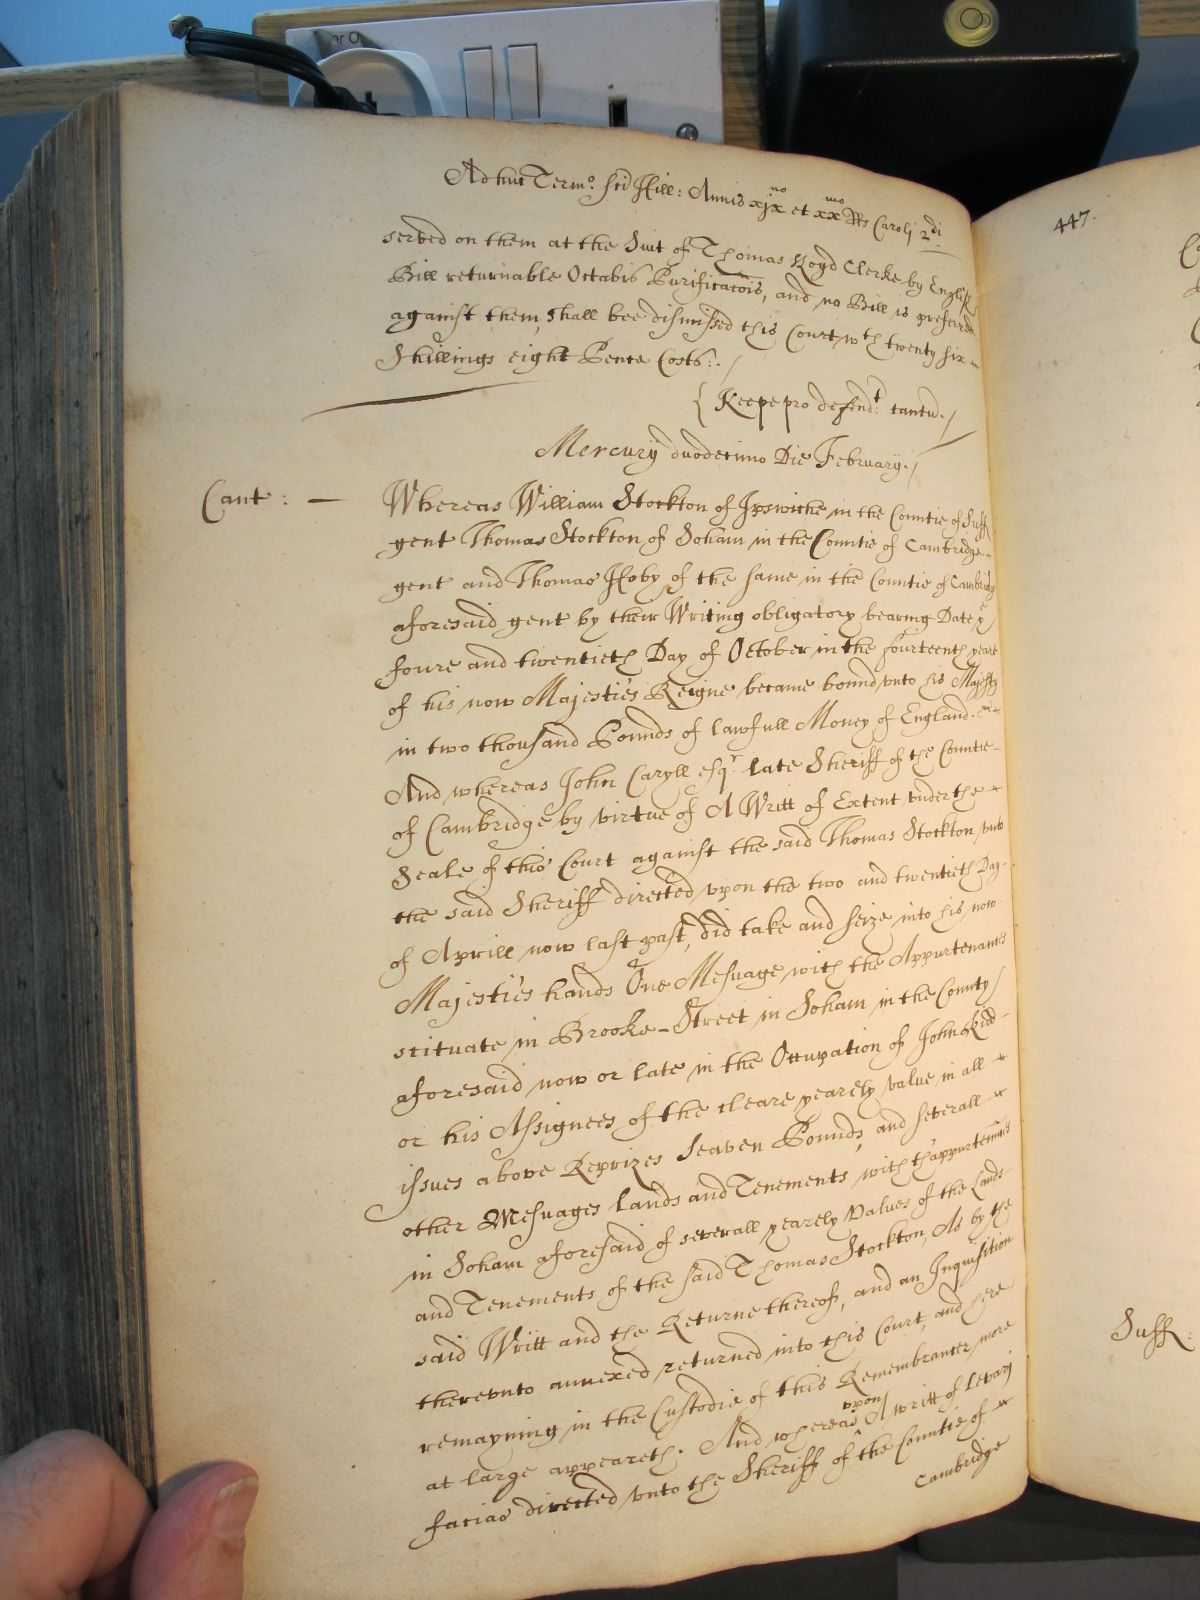 Adhuc Termo. sci Hill: Annis xjxno et xxmo Rs Caroli 2di
served on them at the Suit of Thomas Loyd Clerke by English
Bill returnable Octabis Purificacois, and no Bill is preferred
against them, shall bee dismissed this Court wth twenty six
Shillings eight Pence Costs:. /
{ Keepe pro defendt: tantu. /
Mercurij duodecimo Die February. /
Cant: — Whereas William Stockton of Ipswiche in the Countie of Suff
gent Thomas Stockton of Soham in the Countie of Cambridge
gent and Thomas Hoby of the same in the Countie of Cambridge
aforesaid gent by their Writing obligatory bearing Date ye
foure and twentieth Day of October in the fourteenth yeare
of his now Majesties Reigne became bound vnto his Majesty
in two thousand Pounds of lawfull Money of England.
And whereas John Caryll esqr. late Sheriff of the Countie
of Cambridge by virtue of A Writt of Extent vnder the
Seale of this Court against the said Thomas Stockton vnto
the said Sheriff directed vpon the two and twentieth Day
of Aprill now last past, did take and seize into his now
Majesties hands One Mesuage with the Appurtenances
scituate in Brooke-Street in Soham in the County
aforesaid now or late in the Occupation of John Kidd
or his Assignees of the cleare yearely value in all
issues above Reprizes Seaven Pounds, and severall
other Mesuages Lands and Tenements with th'appurtennces
in Soham aforesaid of severall yearely Values of the Lands
and Tenements of the said Thomas Stockton, As by the
said Writt and the Returne thereof, and an Inquisition
therevnto annexed returned into this Court, and here
remayning in the Custodie of this Remembrancer more
at large appeareth. And whereas vpon A writt of Levari
facias directed vnto the Sheriff of the Countie of
Cambridge
447.
Suff: